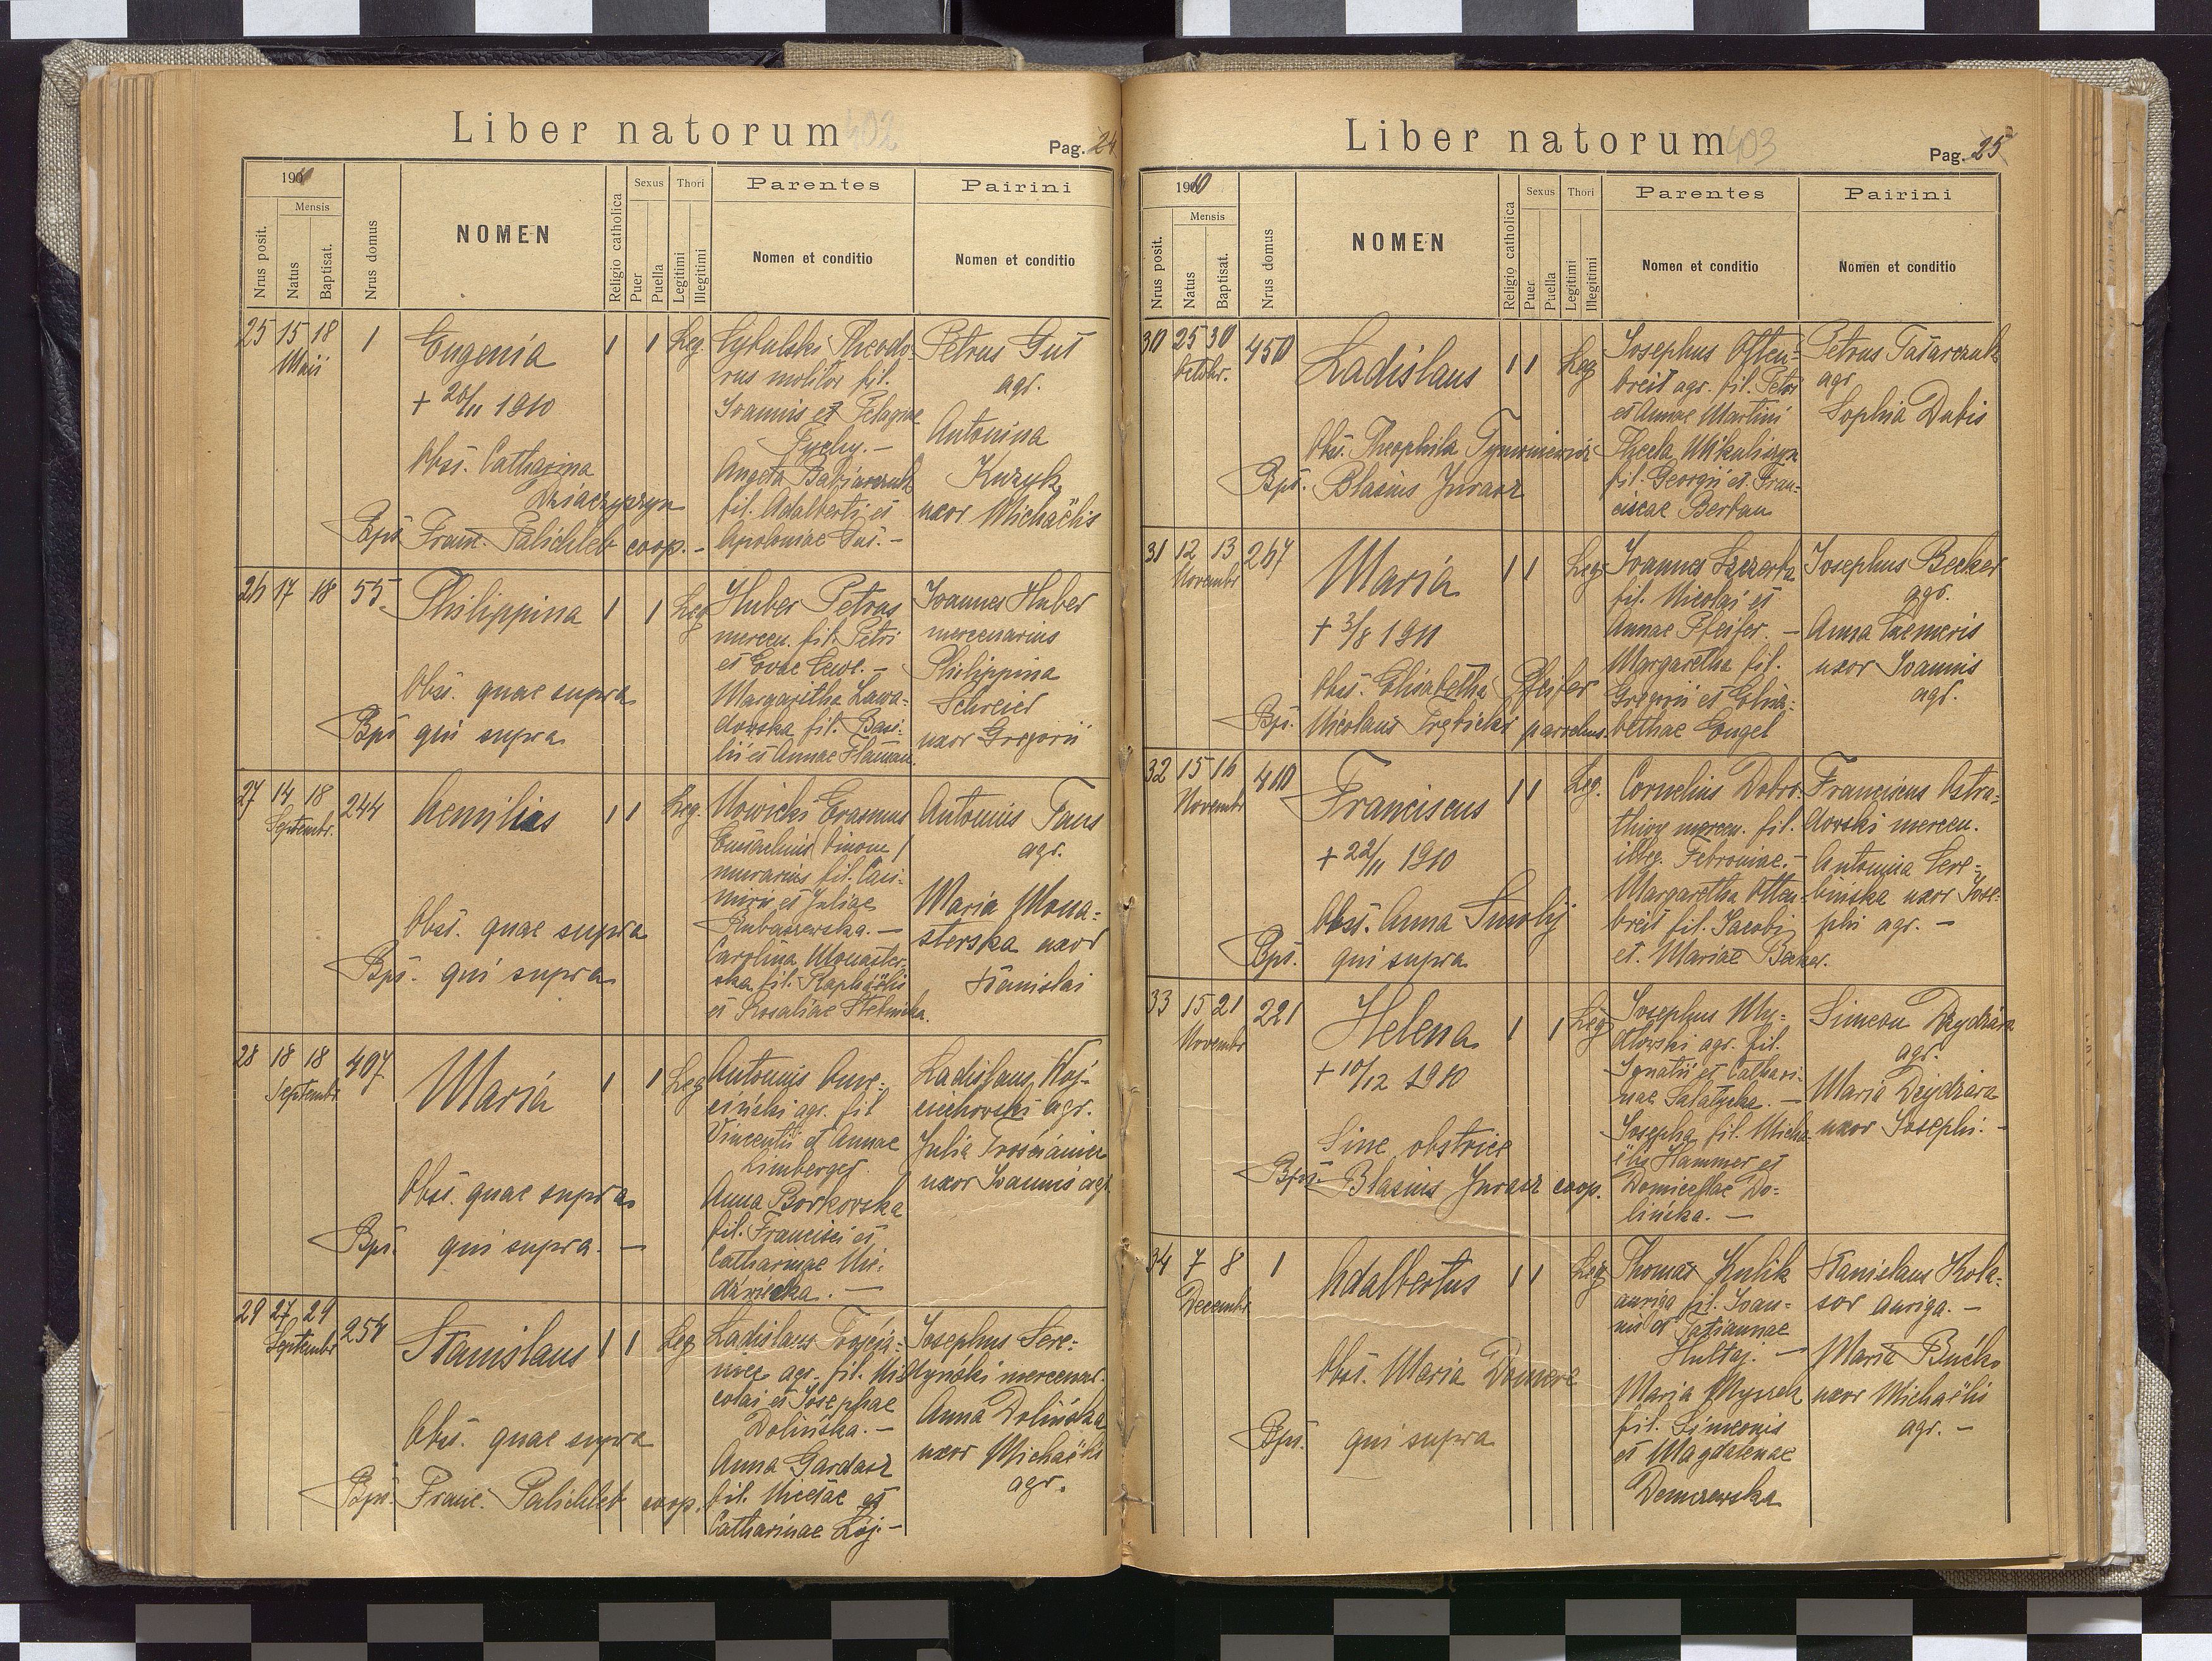 Liber natorum 402
Pag. 24
1910
Mensis
Nrus posit.
Natus
Baptisat.
Nrus domus
NOMEN
Religio catholica
Sexus
Puer
Puella
Thori
Legitimi
Illegitimi
Parentes
Nomen et conditio
Pairini
Nomen et conditio
25 15 18 1
Maii
Eugenia
+ 26/11 1910
Obst. Catharina
Bps Franc. Palichleb coop. -
1 1 Leg.
Cybulski Theodo-
rus molitor fil.
Joannis et Pelagiae
Tychy. -
fil. Adalberti et
Apoloniae Gut. -
Petrus Gut
agr.
Antonina
Kuzyk
uxor Michaëlis
26 17 18 55
Philippina
Obst. quae supra
Bps qui supra
1 1 Leg
Huber Petrus
mercen. fil. Petri
et Evae -
Margaritha Lawa-
dowska fil. Basi-
lii et Annae
Joannes Huber
mercenarius
Philippina
Schreier
uxor Gregorii
27 14 18 244
Septembr.
Aemilias
Obst. quae supra
Bps. qui supra
1 1 Leg.
Nowicki Erasmus
murarius fil. Casi-
miri et Juliae
Rubaszewska. -
Carolina Monaster-
ska fil. Raphaëlis
et Rosaliae Stebnicka.
Antonius
agr.
Maria Mona-
sterska uxor
Stanislai
28 18 18 407
Septembr
Maria
Obst. quae supra
Bps. qui supra. -
1 1 Leg
Antonius
agr. fil
Vincentii et Annae
Limberger.
Anna Borkowska
fil. Francisci et
Catharinae Nie-
Ladislaus Woj-
ciechowski agr.
Julia Trościaniec
uxor Joannis agr.
29 27 29 254
Septembr
Stanislaus
Obst. quae supra
Bps. Franc. Palichleb coop.
1 1 Leg
Ladislaus Trościa-
niec agr. fil. Ni-
colai et Josephae
Dolińska. -
Anna Gardasz
fil. Nicetae et
Catharinae Łój. -
Josephus Sere-
dyński mercenar.
Anna Dolińska
uxor Michaëlis
agr.
Liber natorum 403
Pag. 25
1910
Mensis
Nrus posit.
Natus
Baptisat.
Nrus domus
NOMEN
Religio catholica
Sexus
Puer
Puella
Thori
Legitimi
Illegitimi
Parentes
Nomen et conditio
Pairini
Nomen et conditio
30 25 30 450
Octobr.
Ladislaus
Obst. Theophila Tymoniewicz
Bps. Blasius Jurasz
1 1 Leg
Josephus Otten-
breit agr. fil. Petri
et Annae Martini
Thecla Mikuliszyn
fil. Georgii et Fran-
ciscae Berban
Petrus Tatarczuk
agr
Sophia Dubis
31 12 13 267
Novembr
Maria
+ 3/8 1911
Obst. Elisabetha Pfeifer
Bps. Nicolaus Trębicki parochus.
1 1 Leg
Joannes
fil. Nicolai et
Annae Pfeifer. -
Margaretha fil.
Gregorii et Elisa-
bethae Engel
Josephus Becker
agr.
Anna
uxor Joannis
agr.
32 15 16 410
Novembr
Franciscus
+ 22/11 1910
Obst. Anna Smolij
Bps. qui supra
1 1 Leg.
Cornelius Dobro-
mercen. fil.
illeg. Febroniae. -
Margaretha Otten-
breit fil. Jacobi
et. Mariae Becker.
Franciscus Ostra-
dowski mercen.
Antonina Sere-
bińska uxor Jose-
phi agr. -
33 15 21 221
Novembr
Helena
+ 10/12 1910
Sine obstrice
Bps. Blasius Jurasz coop.
1 1 Leg
Josephus My-
dlowski agr. fil.
Ignatii et Cathari-
nae Sałatycka. -
Josepha fil. Micha-
ëlis Hammer et
Domicellae Do-
lińska. -
Simeon Dzydzára
agr.
Maria Dzydzára
uxor Josephi. -
34 7 8 1
Decembr
Adalbertus
Obst. Maria
Bps. qui supra
1 1 Leg
Thomas Kulik
auriga fil. Joan-
nis et Tatiannae
Hultaj. -
Maria Myszek
fil. Simeonis
et Magdalenae
Demczewska
Stanislaus Kola-
sor auriga. -
Maria Bucko
uxor Michaëlis
agr. -